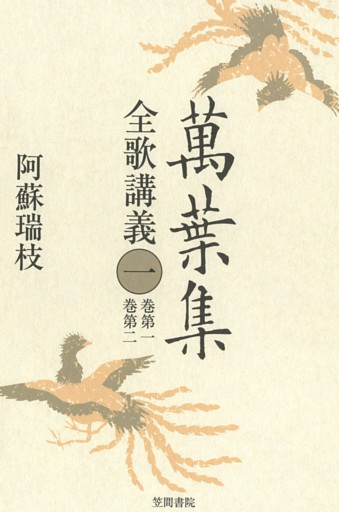 萬葉集
全歌講義
一
巻第一
巻第二
阿蘇瑞枝
笠間書院